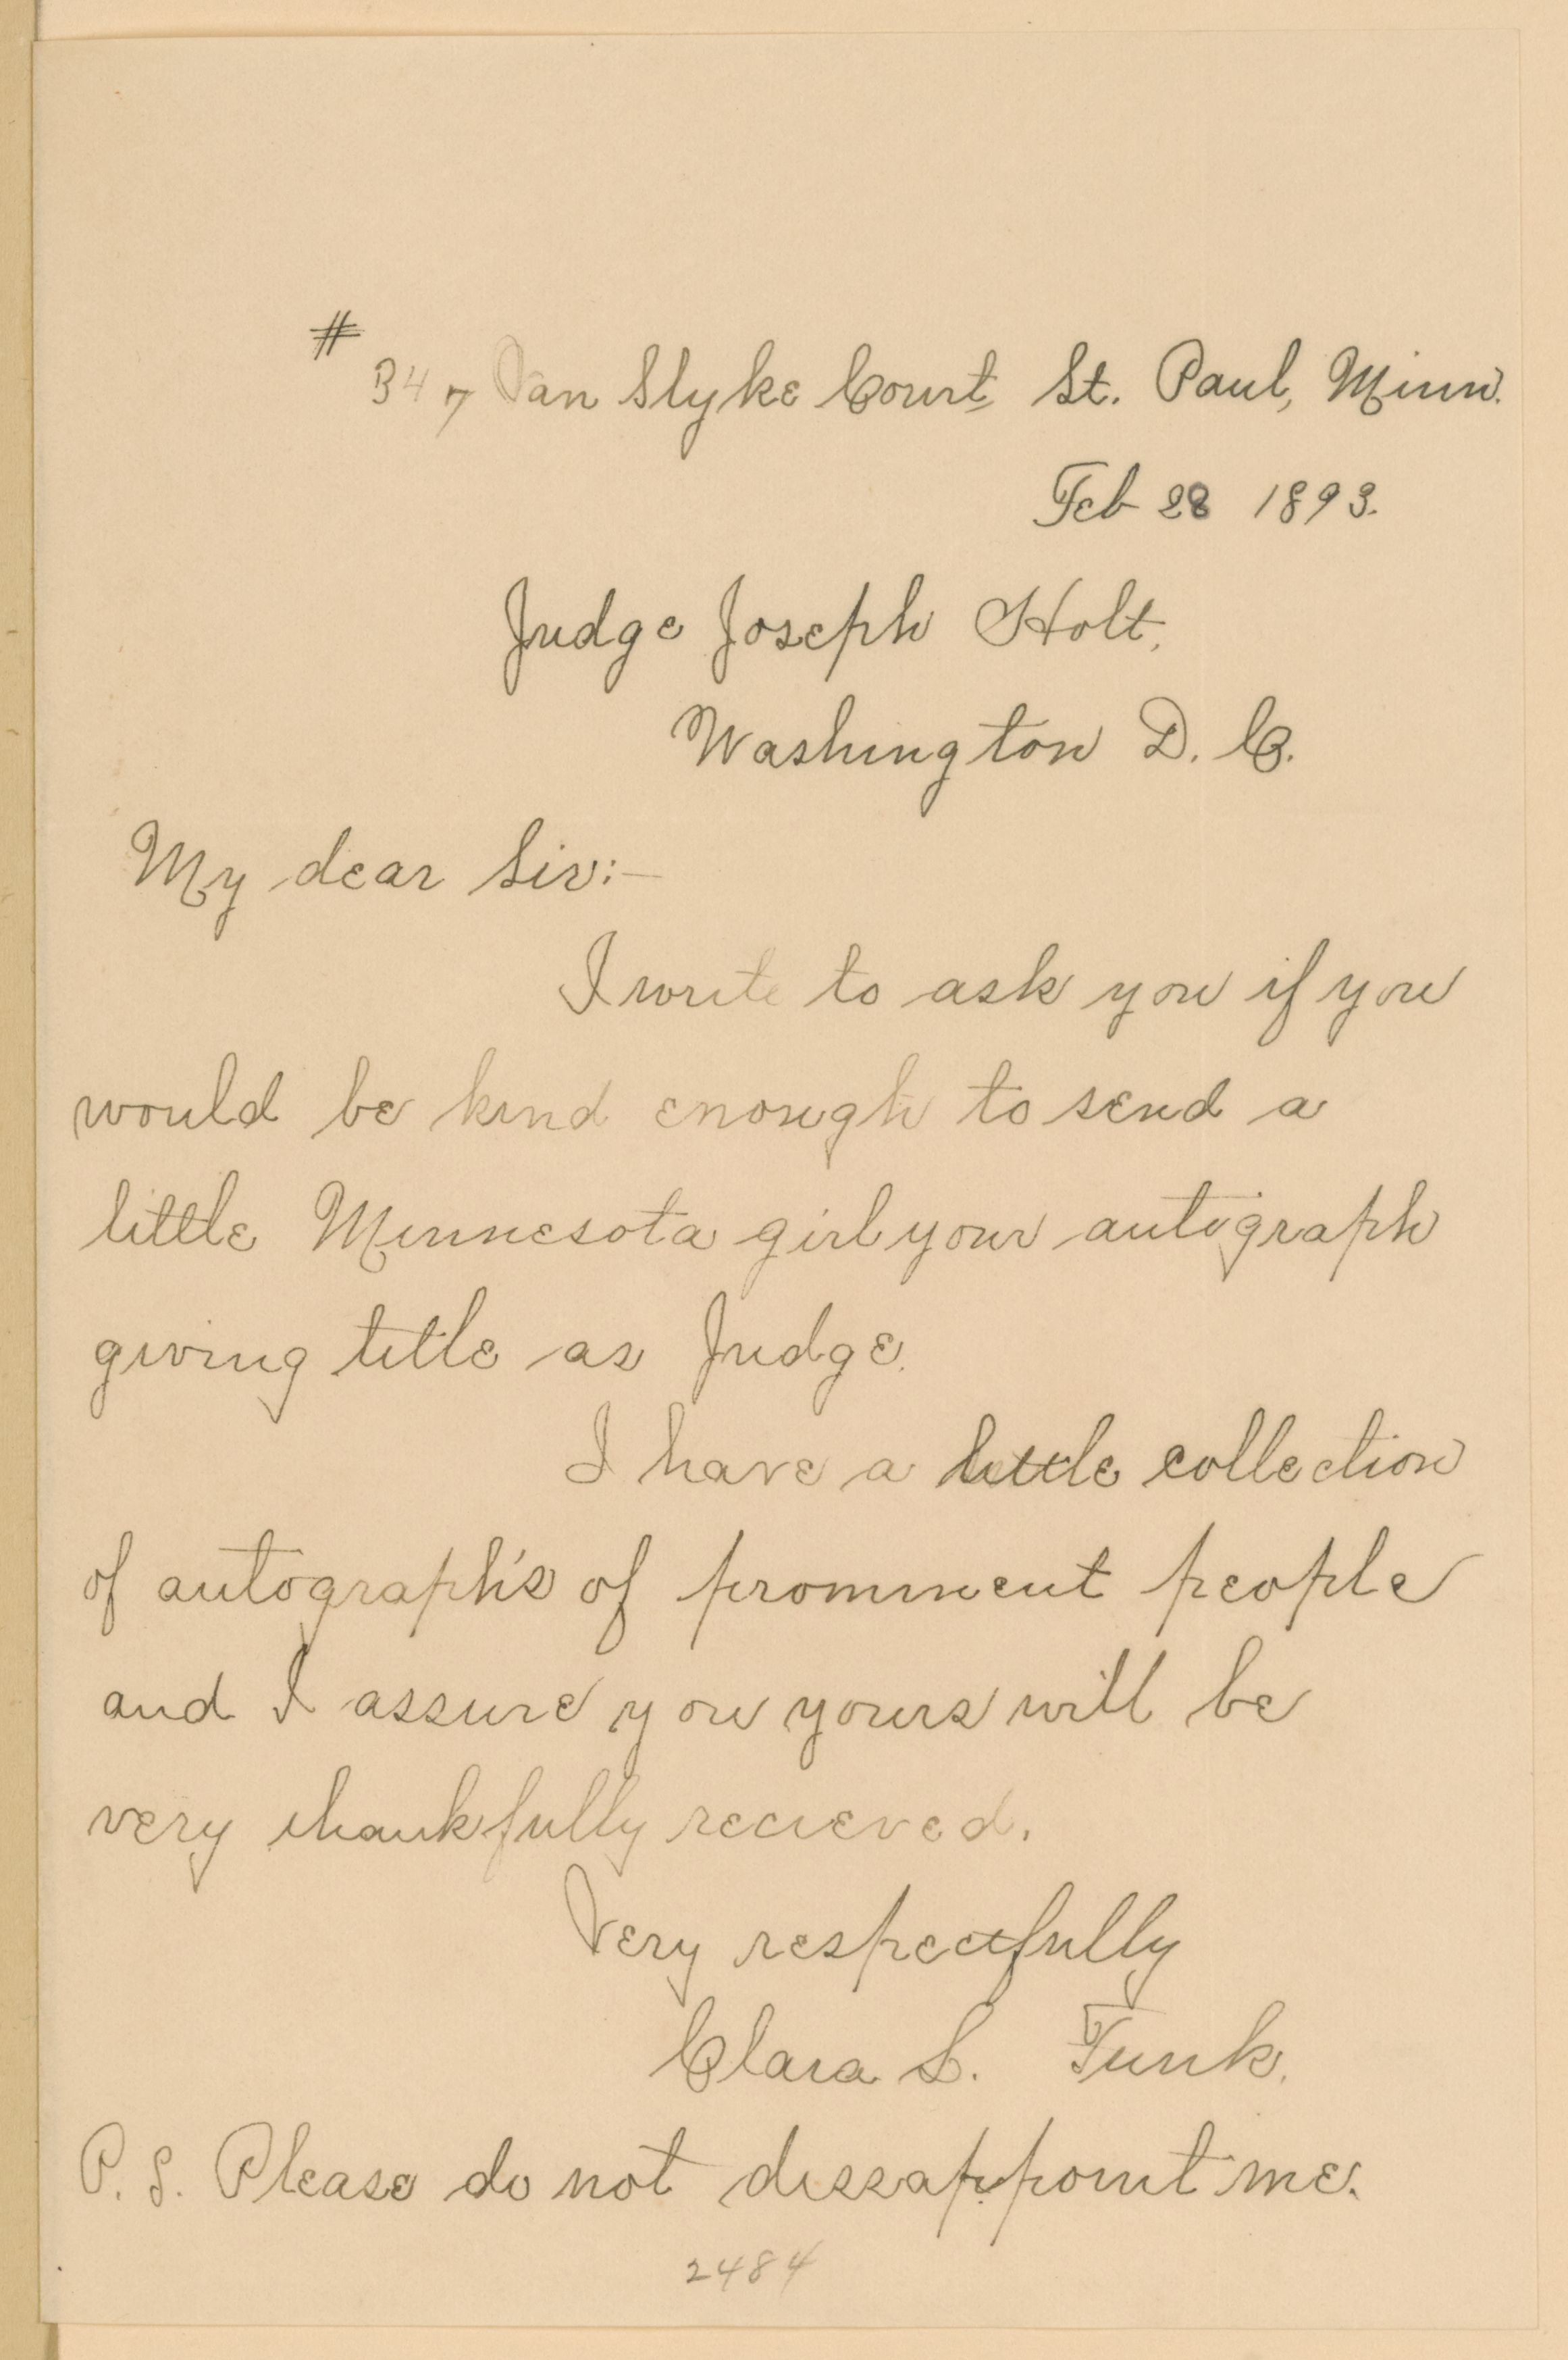 # 347 Van Slyke Court, St. Paul, Minn.
Feb 28 1893.
Judge Joseph Holt,
Washington D. C.
My dear Sir:—
I write to ask you if you
would be kind enough to send a
little Minnesota girl your autograph
giving title as Judge.
I have a little collection
of autograph's of prominent people
and I assure you yours will be
very thankfully recieved.
Very respectfully
Clara L. Funk.
P. S. Please do not dissappoint me.
2484